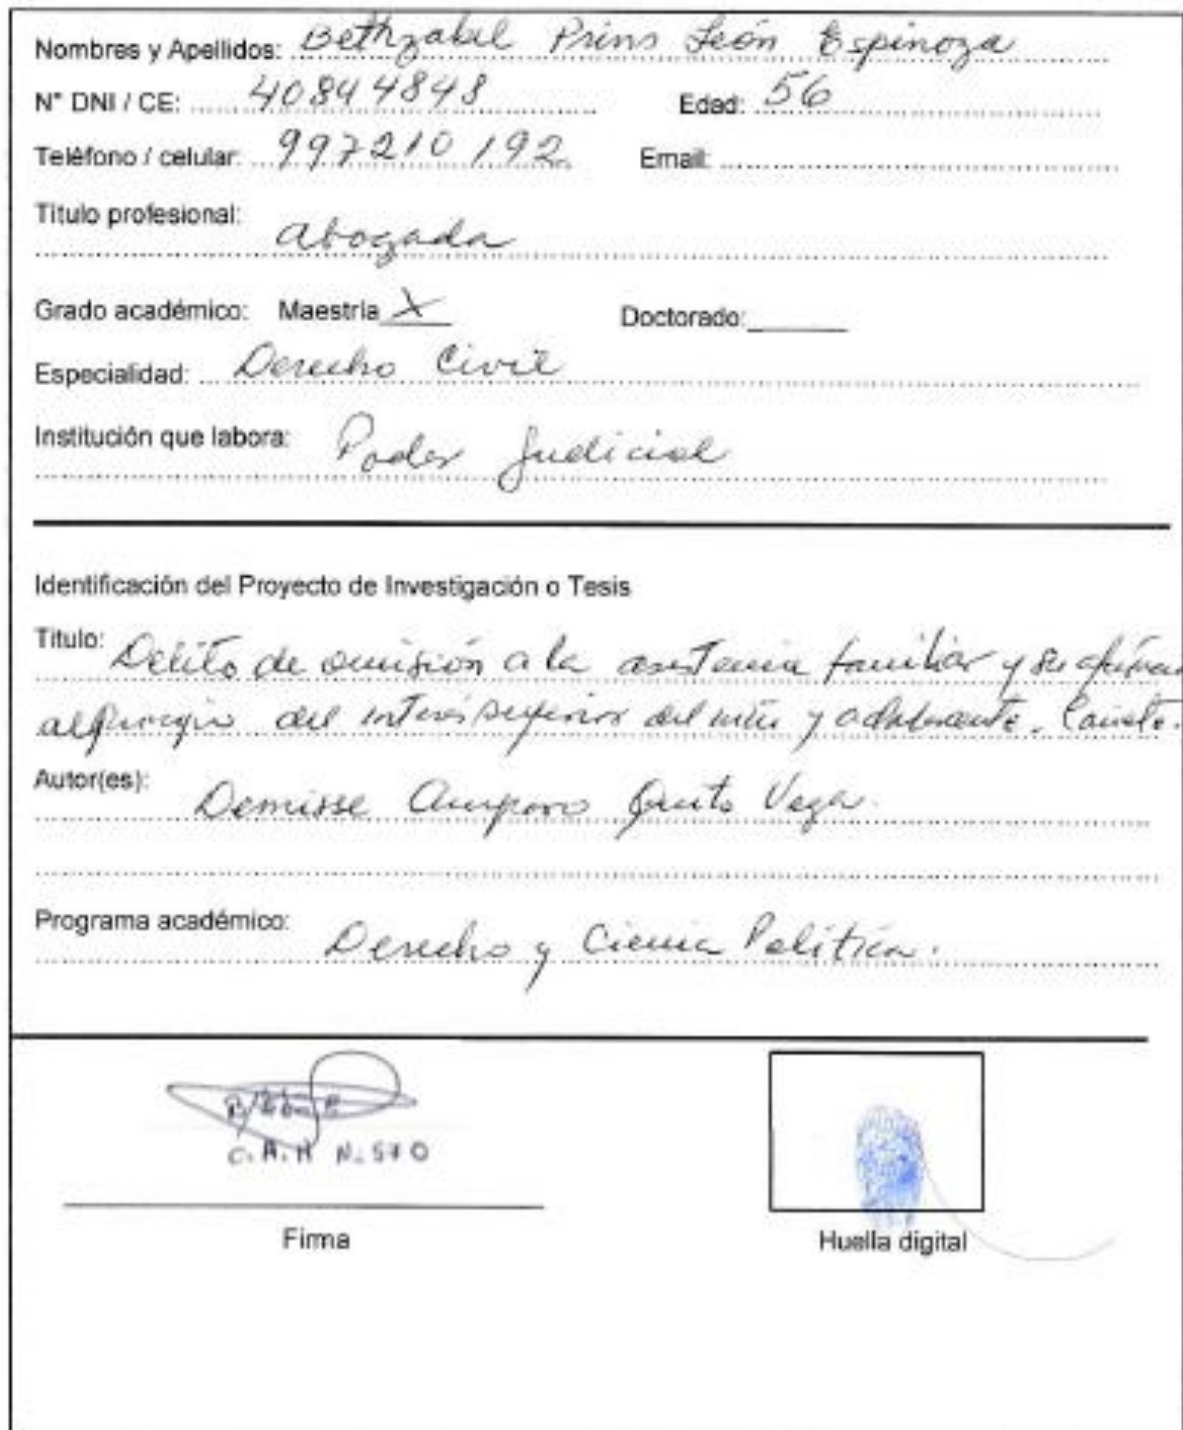 Nombres y Apellidos: Bethzabel Prins León Espinoza
N° DNI / CE: 40844848 Edad: 56
Teléfono / celular: 997210192 Email:
Titulo profesional: abogada
Grado académico: Maestria X Doctorado:
Especialidad: Derecho Civil
Institución que labora: Poder Judicial
Identificación del Proyecto de Investigación o Tesis
Titulo: Delito de omisión a la asistencia familiar y su
al del interés superior del niño y adolescente. Cañete.
Autor(es): Demisse Amparo Vega.
Programa académico: Derecho y Ciencia Politica.
C.A.H N. 570
Firma
Huella digital